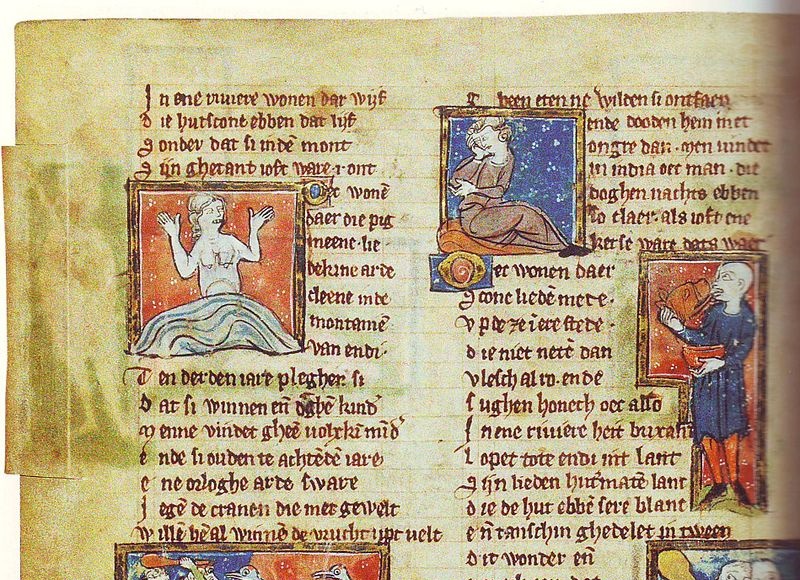 In ene riviere wonen dar wijf
die hutscone ebben dat lijf
Sonder dat si indē mont
Sijn ghetant ioft ware . i . ont
Oec wonē
daer die pig
meene . lie
dekine arde
cleene inde
montanie
van endi .
Ten derden iare pleghen si
Dat si winnen eñ kind
Menne vindet gheē volxkī mīd
ende si ouden te achtēdē iare
ene orloghe arde sware
Jegē de cranen die met gewelt
Willē hē al winnē de vrucht upt velt
been eten ne wilden si ontfaen
ende dooden hem met
ongre dan . Men vindet
in india oec man . die
doghen nachts ebben
So claer . als ioft ene
kerse ware data waer
Oec wonen daer
Scone liedē mede .
Up de zeiere stede .
die niet netē dan
vlesch al ro . ende
sughen honech oec also
In ene riviere heit
Lopet tote endi int lant
Sijn lieden hutmatē lanc
die de hut ebbē sere blanc
eñ tanschin ghedelet in tween
dit wonder eñ